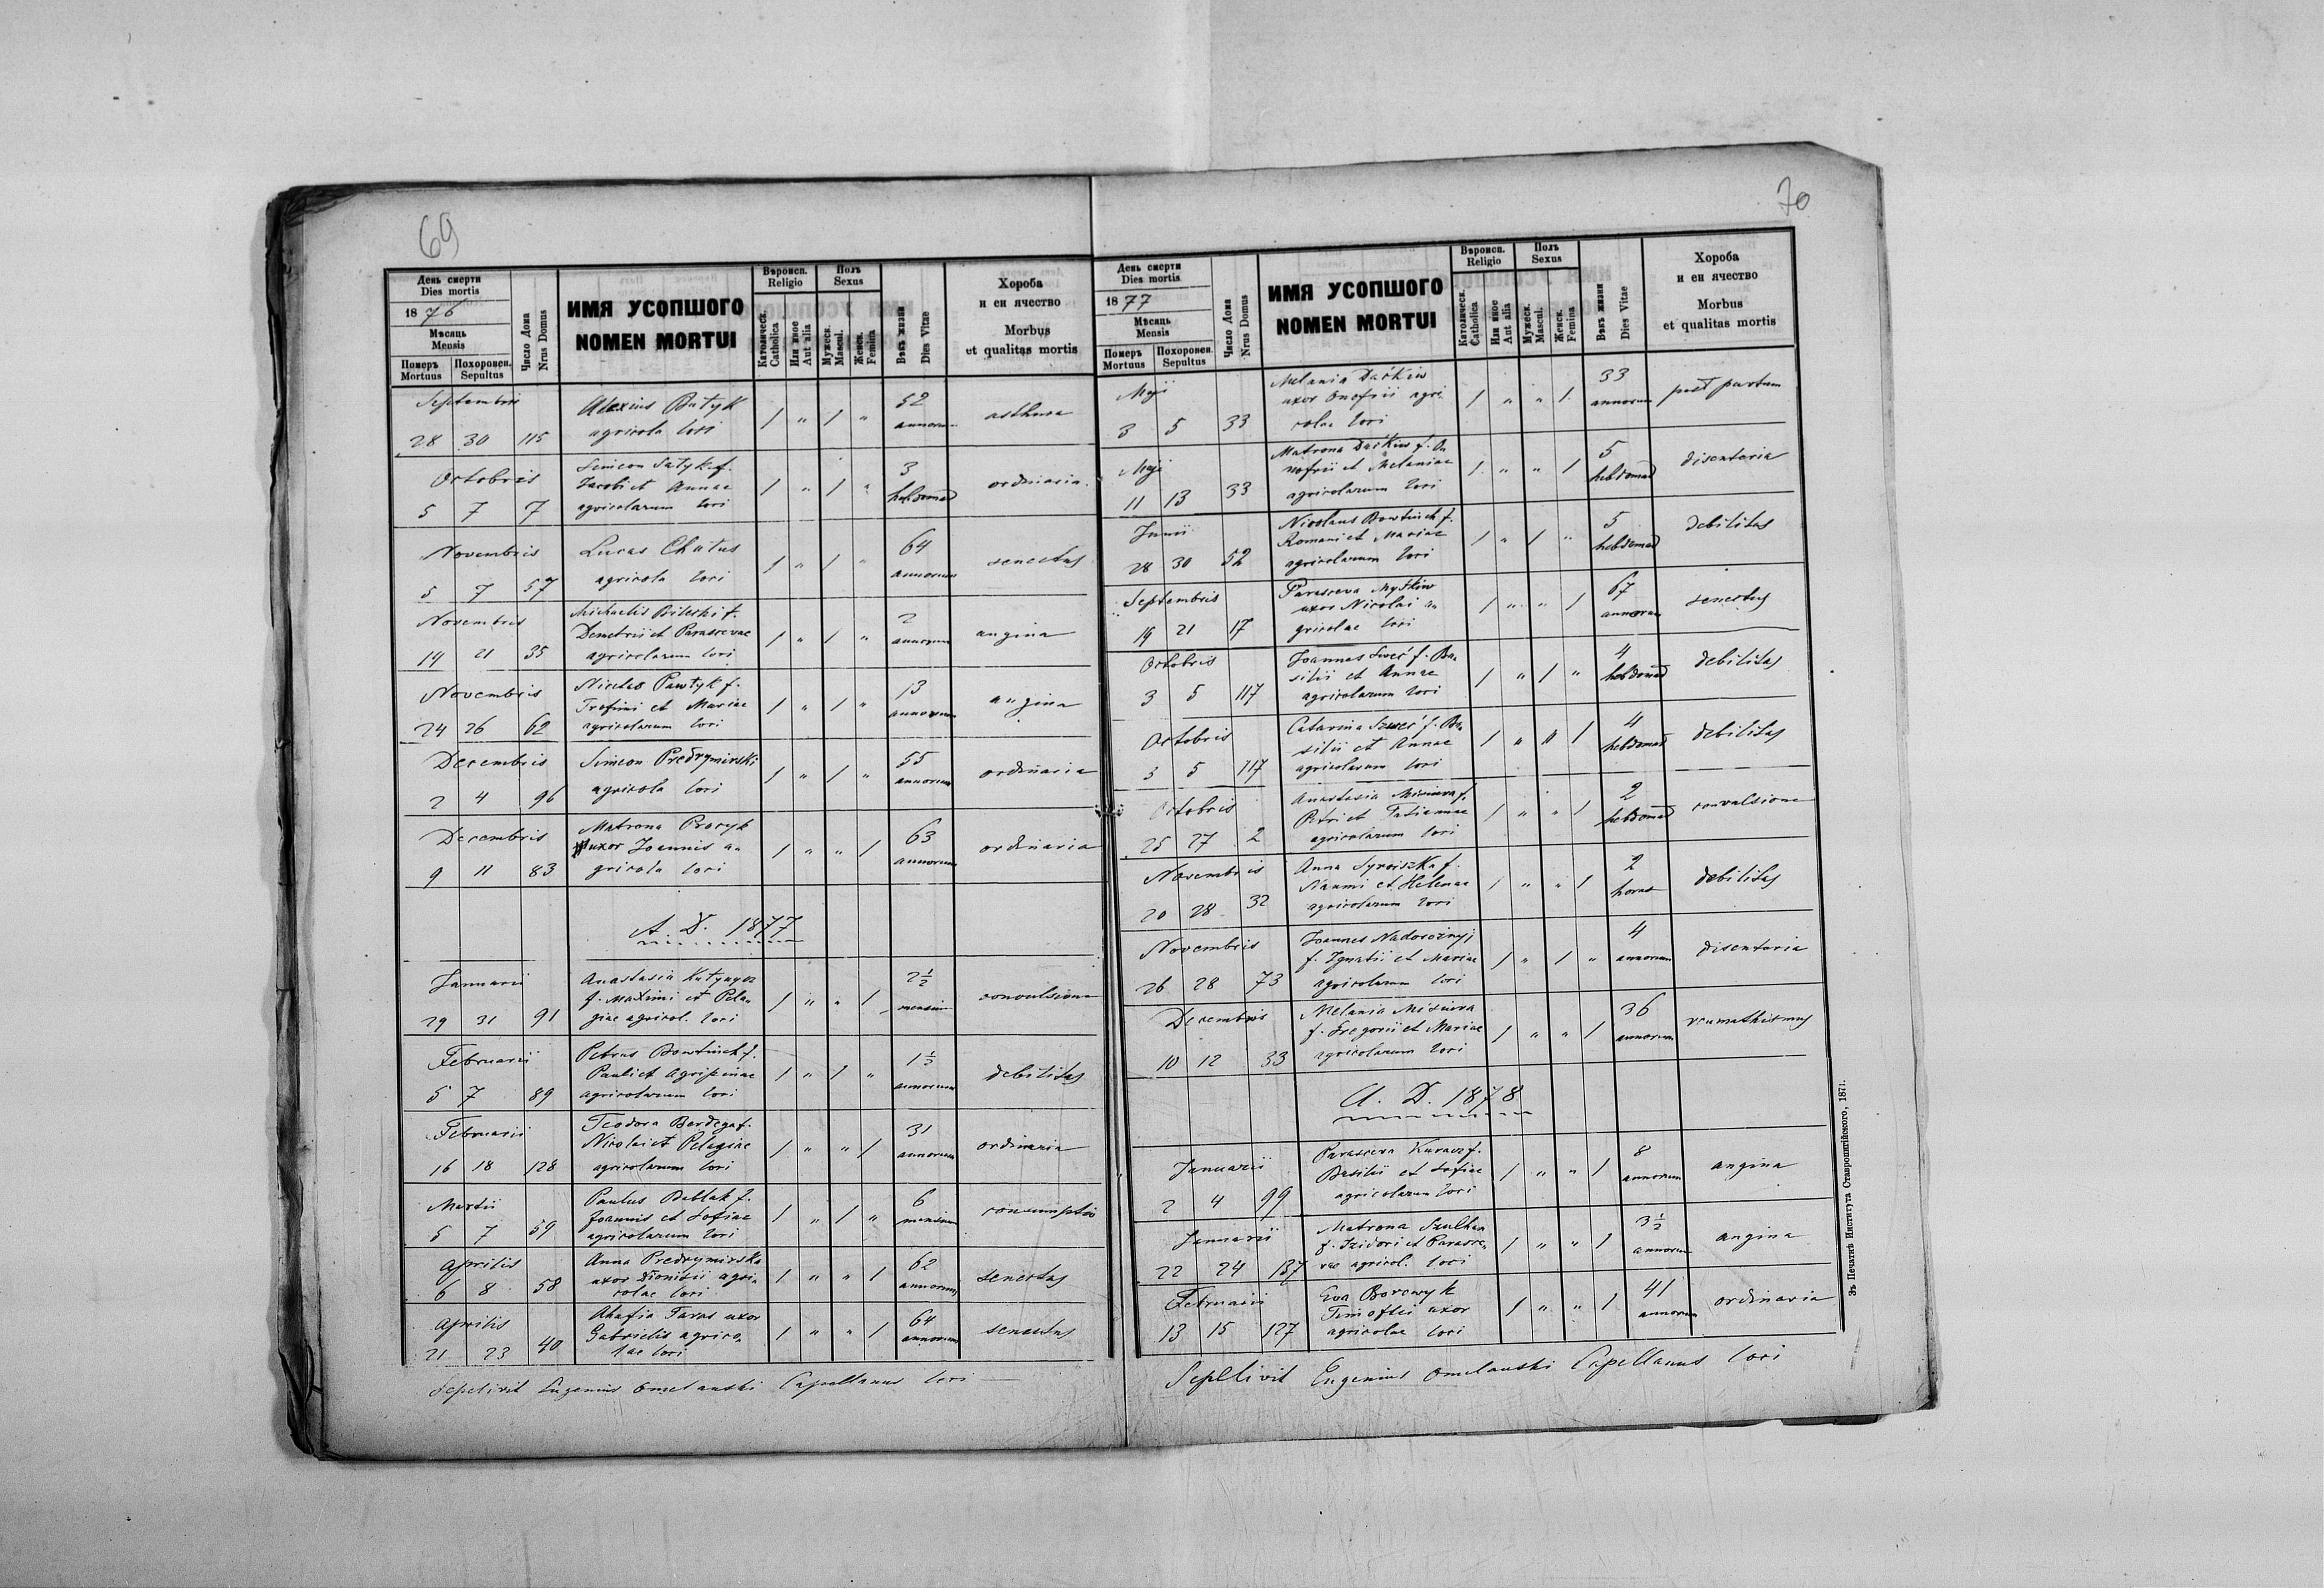 69
День смерти
Dies mortis
1876
Мѣсяць
Mensis
Померъ
Mortuus
Похоронен.
Sepultus
Число Дома
Nrus Domus
ИМЯ УСОПШОГО
NOMEN MORTUI
Вѣроисп.
Religio
Католическ.
Catholica
Или иное
Aut alia
Полъ
Sexus
Мужеск.
Mascul.
Женск.
Femina
Вѣкъ жизни
Dies Vitae
Хороба
и еи ячество
Morbus
et qualitas mortis
Septembris 28 30 115
Alexius Batyk
agricola loci
1 " 1 " 52 annorum asthma
Octobris 5 7 7
Simeon Satyk f.
Jacobi et Annae
agricolarum loci
1 " 1 " 3 hebdomad ordinaria
Novembris 5 7 57
Lucas Chatus
agricola loci
1 " 1 " 64 annorum senectus
Novembris 19 21 35
Michaelis Bileski f.
Demetrii et Parascevae
agricolarum loci
1 " 1 " 2 annorum angina
Novembris 24 26 62
Nicetas Pawtyk f.
Trofimi et Mariae
agricolarum loci
1 " 1 " 13 annorum angina
Decembris 2 4 96
Simeon Predrymirski
agricola loci
1 " 1 " 55 annorum ordinaria
Decembris 9 11 83
Matrona Procyk
uxor Joannis a=
gricola loci
1 " " 1 63 annorum ordinaria
A. D. 1877
Januarii 29 31 91
Anastasia
f. Maximi et Pela=
giae agricol. loci
1 " " 1 2½ mensium convulsione
Februarii 5 7 89
Petrus Bowtinek f.
Pauli et Agripinae
agricolarum loci
1 " 1 " annorum debilitas
Februarii 16 18 128
Teodora Berdega f.
Nicolai et Pelagiae
agricolarum loci
1 " " 1 31 annorum ordinaria
Martii 5 7 59
Paulus Bablak f.
Joannis et Sofiae
agricolarum loci
1 " 1 " 6 mensium consumptio
Aprilis 6 8 58
Anna Predrymirska
uxor Dionisii agri=
colae loci
1 " " 1 62 annorum senectus
Aprilis 21 23 40
Ahafia Taras uxor
Gabrielis agrico=
lae loci
1 " " 1 64 annorum senectus
Sepelivit Eugenius Omelanski Capellanus loci
70
День смерти
Dies mortis
1877
Мѣсяць
Mensis
Померъ
Mortuus
Похоронен.
Sepultus
Число Дома
Nrus Domus
ИМЯ УСОПШОГО
NOMEN MORTUI
Вѣроисп.
Religio
Католическ.
Catholica
Или иное
Aut alia
Полъ
Sexus
Мужеск.
Mascul.
Женск.
Femina
Вѣкъ жизни
Dies Vitae
Хороба
и еи ячество
Morbus
et qualitas mortis
Maji 3 5 33
Melania Dačkiw
uxor Onofrii agri=
colae loci
1 " " 1 33 annorum post partum
Maji 11 13 33
Matrona Dačkiw f. O=
nofrii et Melaniae
agricolarum loci
1 " " 1 5 hebdomad disenteria
Junii 28 30 52
Nicolaus Bowtinek f.
Romani et Mariae
agricolarum loci
1 " 1 " 5 hebdomad debilitas
Septembris 19 21 17
Parasceva Myśkiw
uxor Nicolai a=
gricolae loci
1 " " 1 67 annorum senectus
Octobris 3 5 117
Joannes Szweć f. Ba=
silii et Annae
agricolarum loci
1 " 1 " 4 hebdomad debilitas
Octobris 3 5 117
Catarina Szweć f. Ba=
silii et Annae
agricolarum loci
1 " " 1 4 hebdomad debilitas
Octobris 25 27 2
Anastasia Misiura f.
Petri et Tatianae
agricolarum loci
1 " " 1 2 hebdomad convulsione
Novembris 20 28 32
Anna Syroiszka f.
Naumi et Helenae
agricolarum loci
1 " " 1 2 horas debilitas
Novembris 26 28 73
Joannes Nadorożnyj
f. Ignatii et Mariae
agricolarum loci
1 " 1 " 4 annorum disenteria
Decembris 10 12 33
Melania Misiura
f. Gregorii et Mariae
agricolarum loci
1 " " 1 36 annorum reumathismus
A. D. 1878
Januarii 2 4 99
Parasceva Kuracz f.
Basilii et Sofiae
agricolarum loci
1 " " 1 8 annorum angina
Januarii 22 24 137
Matrona Szulhan
f. Isidori et Parasce=
vae agricol. loci
1 " " 1 3½ annorum angina
Februarii 13 15 127
Eva Borcwyk
Timoftei uxor
agricolae loci
1 " " 1 41 annorum ordinaria
Sepelivit Eugenius Omelanski Capellanus loci
Зъ Печатнѣ Института Ставропигійского, 1871.